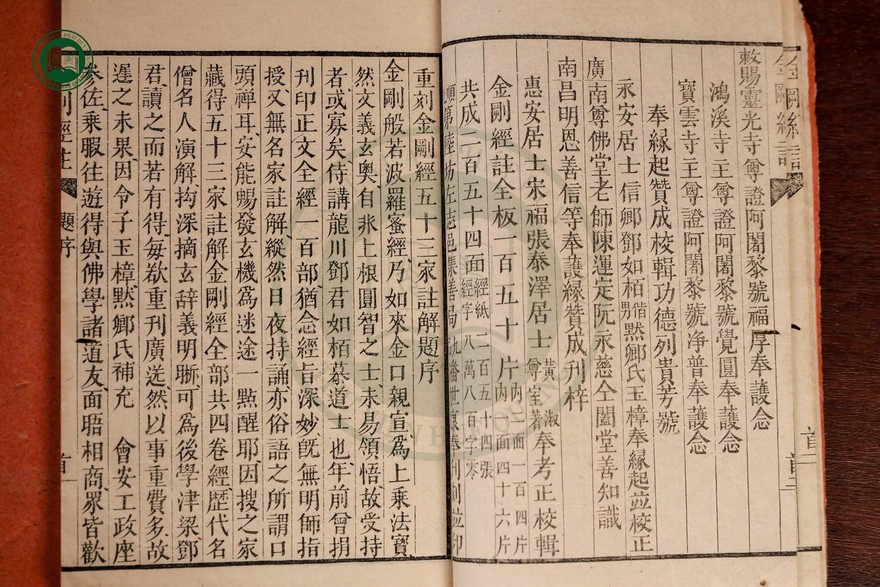 金剛經註
敕賜靈光寺尊證阿闍黎號福厚奉護念
鴻溪寺主尊證阿闍黎號覺圓奉護念
寶雲寺主尊證阿闍黎號淨普奉護念
奉緣起贊成校輯功德列貴芳號
永安居士信卿鄧如栢
默卿氏玉樟奉緣起並校正
廣南尊佛堂老師陳運定阮永慈仝闔堂善知識
南昌明恩善信等奉護緣贊成刊梓
惠安居士宋福張泰澤居士
黃淑
尊室著
奉考正校輯
金剛經註全板一百五十片
內二面一百四片
內面四十六片
共成二百五十四面
經紙二百五十四張
經字八萬八百字零
重刻金剛經五十三家註解題序
金剛般若波羅蜜經乃如來金口親宣為上乘法寶
然文義玄奧自非上根圓智之士未易領悟故受持
者或寡矣侍講龍川鄧君如栢慕道士也年前曾捐
刊印正文全經一百部猶念經旨深妙旣無明師指
授又無名家註解縱然日夜持誦亦俗語之所謂口
頭禪耳安能暢發玄機為迷途一點醒耶因搜之家
藏得五十三家註解金剛經全部共四卷經歷代名
僧名人演解拘深摘玄辞義明晣可為後學津梁鄧
君讀之而若有得每欲重刊廣送然以事重費多故
遲之未果因令子玉樟默卿氏補充 會安工政座
參佐乘暇往遊得與佛學諸道友面晤相商眾皆歡
剛經註
題序
首一